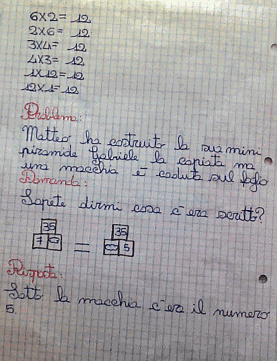 6x2= 12
2x6= 12
3x4= 12
4x3= 12
1x12= 12
12x1= 12
Problema:
Matteo ha costruito la sua mini
piramide Gabriele la copiata ma
una macchia è caduta sul foglio
Domanda:
Sapete dirmi cosa c'era scritto?
35 35
7 = 5
Risposta:
Sotto la macchia c'era il numero
5.